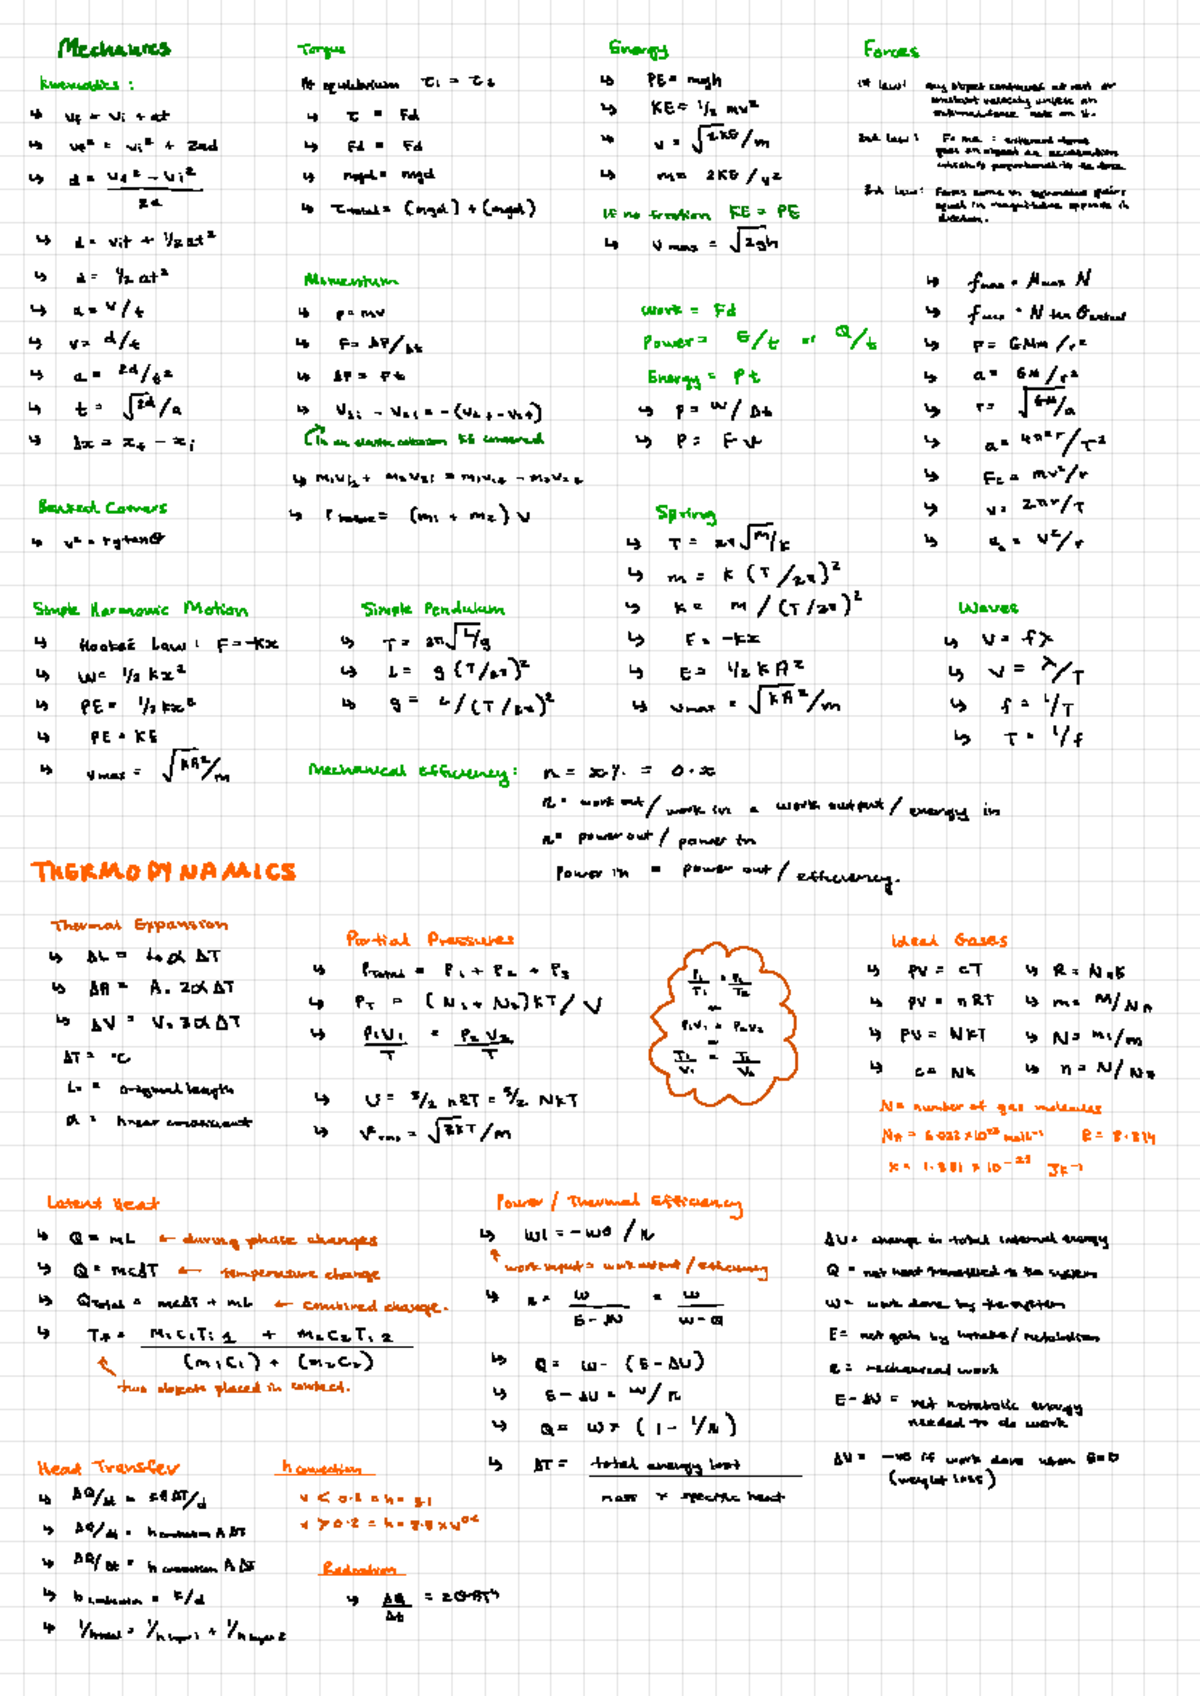 Mechanics
Kinematics :
↳ vf = vi + at
↳ vf² = vi² + 2ad
↳ d = vf² - vi² / 2a
↳ d = vit + 1/2 at²
↳ d = 1/2 at²
↳ a = v/t
↳ v = d/t
↳ a = 2d/t²
↳ t = √2d/a
↳ Δx = xf - xi
Banked Corners
↳ v² = rg tanθ
Torque
At equilibrium τ1 = τ2
↳ τ = Fd
↳ Fd = Fd
↳ mgd = mgd
↳ τtotal = (mgd) + (mgd)
Momentum
↳ p = mv
↳ F = ΔP/Δt
↳ ΔP = Ft
↳ V1i - V2i = -(V1f - V2f)
In an elastic collision KE conserved
↳ m1v1i + m2v2i = m1v1f - m2v2f
↳ = (m1 + m2) V
Energy
↳ PE = mgh
↳ KE = 1/2 mv²
↳ v = √2KE/m
↳ m = 2KE/v²
If no friction KE = PE
↳ vmax = √2gh
Work = Fd
Power = E/t or Q/t
Energy = Pt
↳ P = W/Δt
↳ P = Fv
Forces
1st law: any object continues at rest or
constant velocity unless an
external force acts on it.
2nd law: F = ma : external force
gives an object an acceleration
which is proportional to the force.
3rd law: Forces come in symmetric pairs
equal in magnitude opposite in
direction.
↳ fmax = μmax N
↳ fmax = N tan θcritical
↳ F = GMm/r²
↳ a = GM/r²
↳ r = √GM/a
↳ a = 4π²r/T²
↳ Fc = mv²/r
↳ v = 2πr/T
↳ ac = v²/r
Spring
↳ T = 2π√m/k
↳ m = k (T/2π)²
↳ k = m/(T/2π)²
↳ F = -kx
↳ E = 1/2 kA²
↳ vmax = √kA²/m
Simple Harmonic Motion
↳ Hooke's Law : F = -kx
↳ W = 1/2 kx²
↳ PE = 1/2 kx²
↳ PE = KE
↳ vmax = √kA²/m
Simple Pendulum
↳ T = 2π√L/g
↳ L = g (T/2π)²
↳ g = L/(T/2π)²
Waves
↳ V = fλ
↳ V = λ/T
↳ f = 1/T
↳ T = 1/f
Mechanical efficiency: n = x% = 0.x
n = work out/work in = work output/energy in
n = power out/power in
Power in = power out/efficiency.
THERMODYNAMICS
Thermal Expansion
↳ ΔL = L₀αΔT
↳ ΔA = A₀2αΔT
↳ ΔV = V₀3αΔT
ΔT = °C
L₀ = original length
α = linear coefficient
Partial Pressures
↳ Ptotal = P1 + P2 + P3
↳ PT = (N1 + N2)kT/V
↳ P1V1/T = P2V2/T
↳ U = 3/2 nRT = 3/2 NkT
↳ Vrms = √3kT/m
P1/T1 = P2/T2
P1V1 = P2V2
T1/V1 = T2/V2
Ideal Gases
↳ PV = cT
↳ PV = nRT
↳ PV = NkT
↳ c = Nk
↳ R = NAk
↳ m = M/NA
↳ N = m1/m
↳ n = N/NA
N = number of gas molecules
NA = 6.022 × 10²³ mol⁻¹ R = 8.314
k = 1.381 × 10⁻²³ JK⁻¹
Latent Heat
↳ Q = mL ← during phase changes
↳ Q = mcΔT ← temperature change
↳ Qtotal = mcΔT + mL ← combined change.
↳ Tf = m1c1Ti1 + m2c2Ti2 / (m1c1) + (m2c2)
two objects placed in contact.
Power / Thermal Efficiency
↳ WI = -WO/n
work input = work output/efficiency
↳ n = W / E-ΔU = W / W-Q
↳ Q = W - (E-ΔU)
↳ E-ΔU = W/n
↳ Q = W × (1 - 1/n)
↳ ΔT = total energy lost / mass × specific heat
ΔU = change in total internal energy
Q = net heat transferred to the system
W = work done by the system
E = net gain by intake/metabolism
n = mechanical work
E-ΔU = net metabolic energy
needed to do work
ΔU = -ve if work done when E=0
(weight loss)
Heat Transfer
↳ ΔQ/Δt = kAΔT/d
↳ ΔQ/Δt = hconduction AΔT
↳ ΔQ/Δt = hconvection AΔT
↳ hconduction = k/d
↳ 1/htotal = 1/hlayer1 + 1/hlayer2
h convection
v < 0.2 = h = 3.1
v > 0.2 = h = × v^0.6
Radiation
↳ ΔQ/Δt =